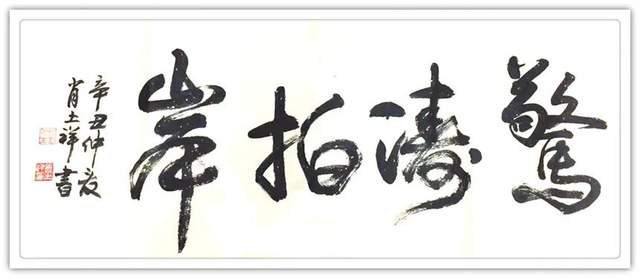 驚濤拍岸
辛丑仲夏
肖土祥書